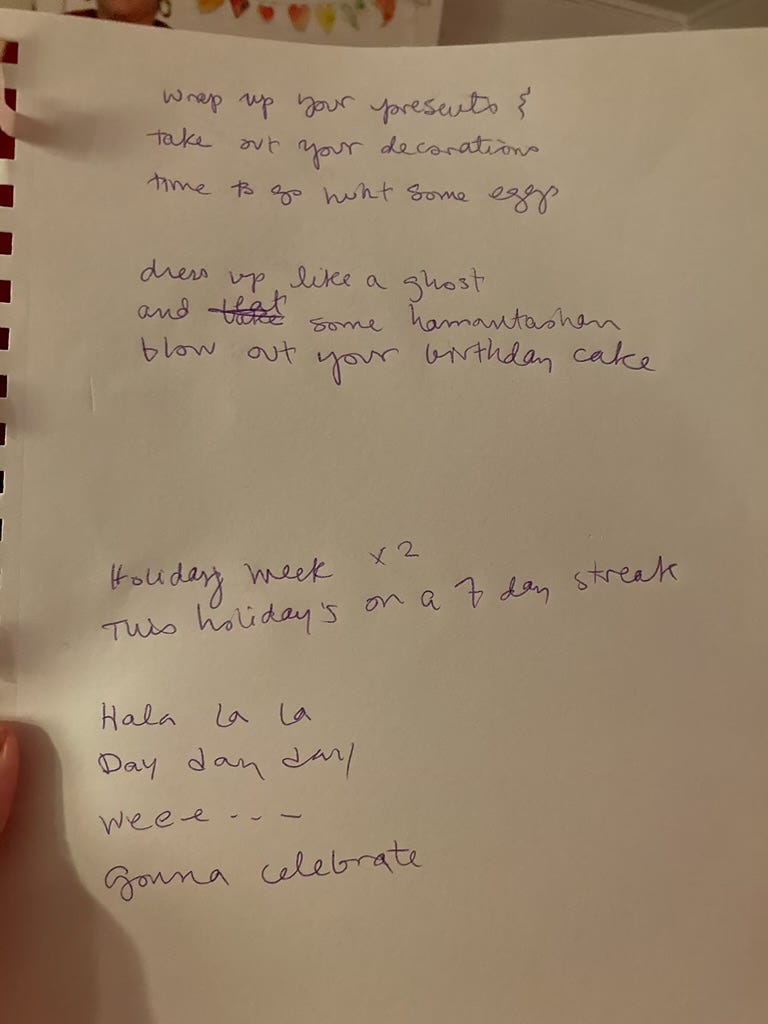 wrap up your presents &
take out your decorations
time to go hunt some eggs
dress up like a ghost
and eat some hamantashen
blow out your birthday cake
Holiday week x2
This holiday's on a 7 day streak
Hala la la
Day day day
weee---
gonna celebrate